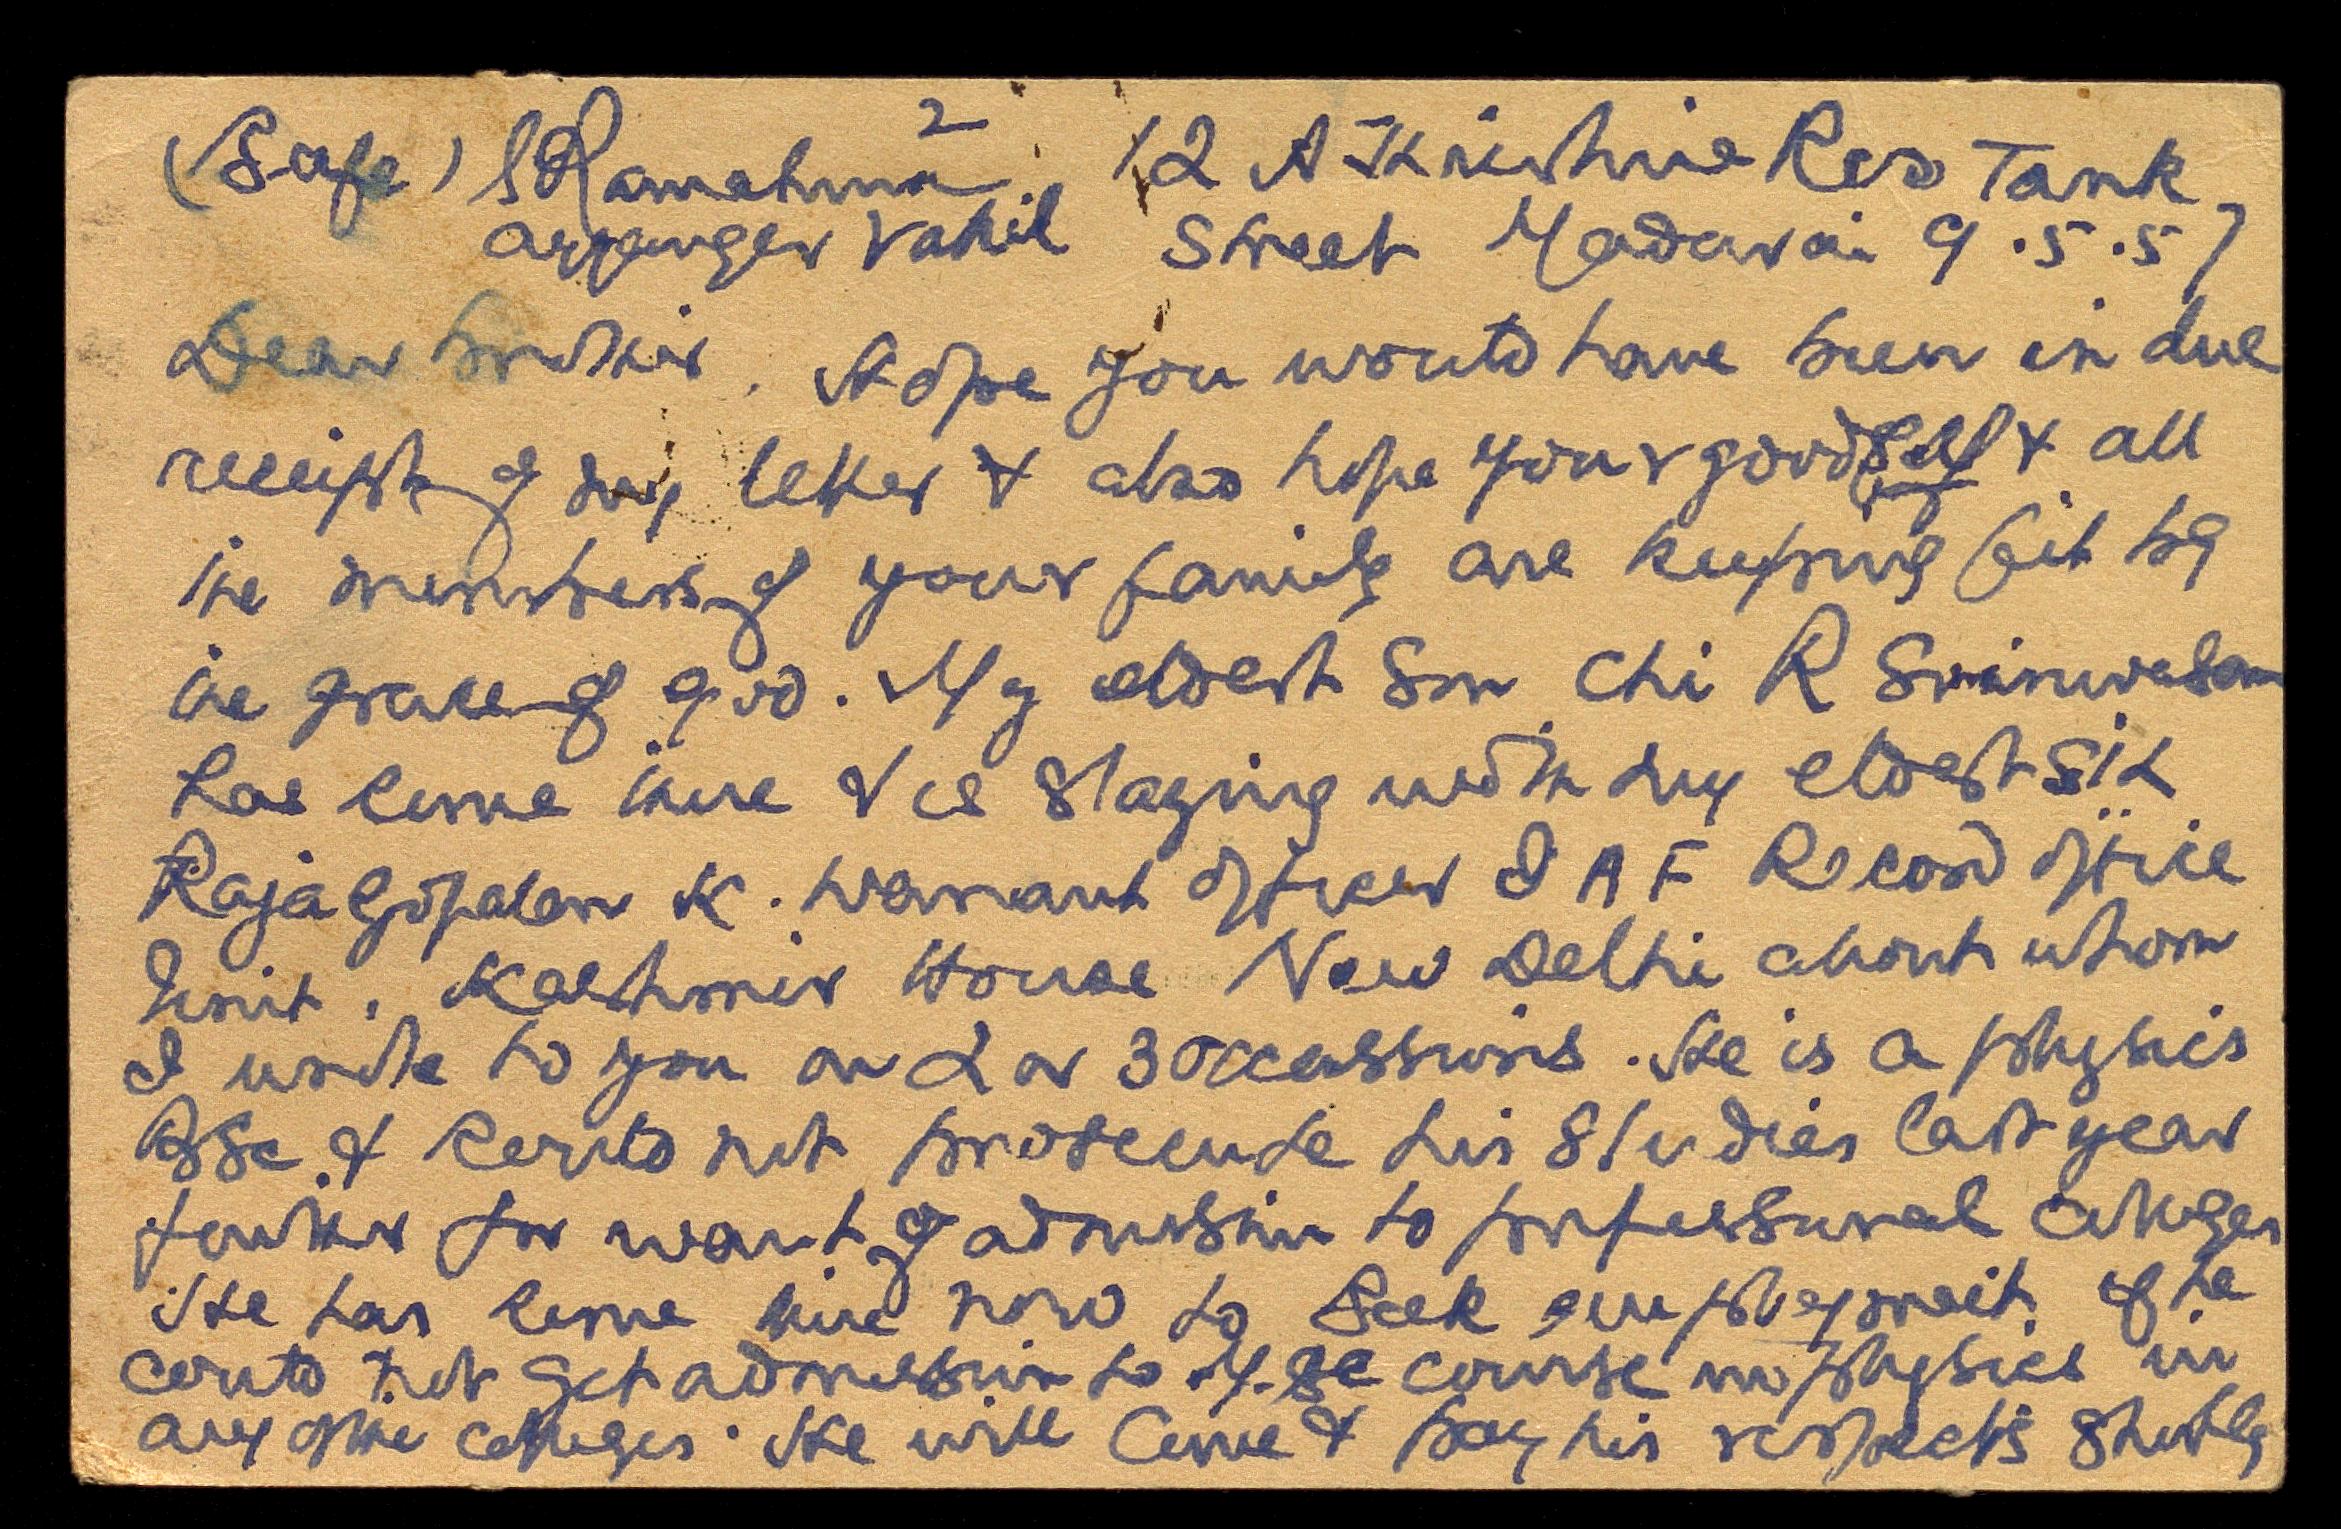 (Safe) S Ramanuja 2 12 A Krishna Rao Tank
ayyangar Vakil Street Madurai 9.5.57
Dear brother, Hope you would have been in due
receipt of my letter & also hope your goodself & all
the members of your family are keeping fit by
the grace of god. My eldest son Chi R Srinivasan
has come there & is staying with my eldest SiL
Rajagopalan K. Warrant officer I A F Record office
Unit, Kashmir House New Delhi about whom
I wrote to you on 2 or 3 occassions. He is a physics
BSc & could not prosecute his studies last year
further for want of admission to professional colleges
He has come here now to seek employment if he
could not get admission to M.Sc course in physics in
any of the colleges. He will come & pay his respects shortly